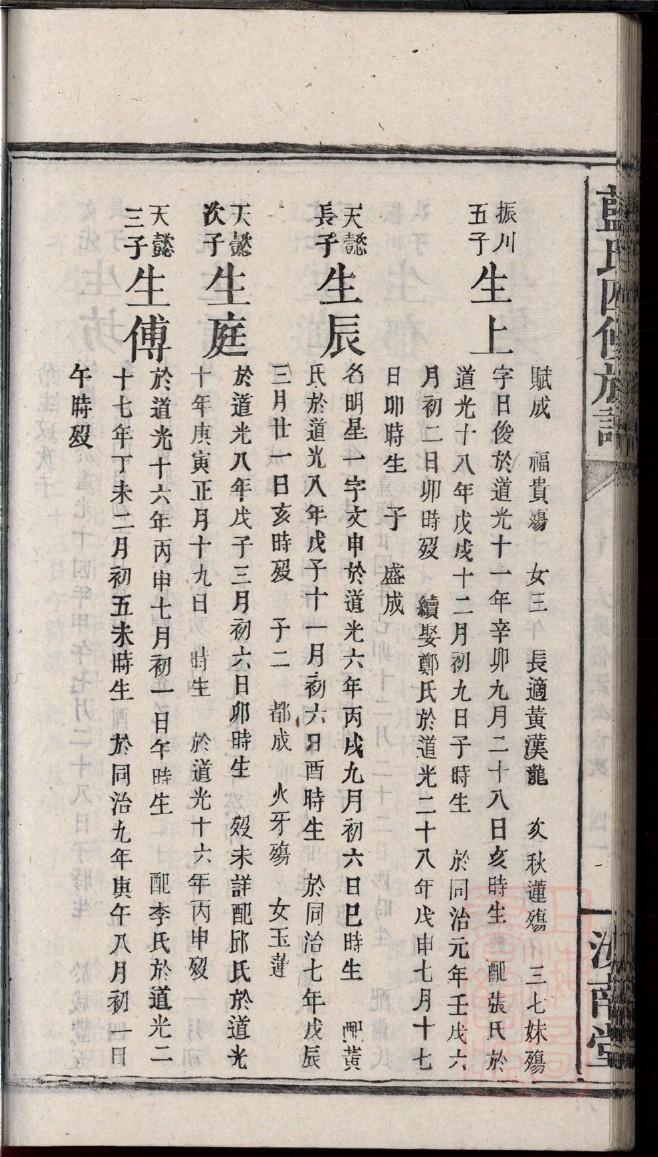 藍氏四修族譜
汝南堂
賦成 福貴殤 女三 長適黃漢龍 亥秋蓮殤 三七妹殤
振川五子 生上 字日俊於道光十一年辛卯九月二十八日亥時生 配張氏於
道光十八年戊戌十二月初九日子時生 於同治元年壬戌六
月初二日卯時殁 續娶鄭氏於道光二十八年戊申七月十七
日卯時生 子 盛成
天懿長子 生辰 名明星一字文申於道光六年丙戌九月初六日巳時生 配黃
氏於道光八年戊子十一月初六日酉時生 於同治七年戊辰
三月廿一日亥時殁 子二 都成 火牙殤 女玉蓮
天懿次子 生庭 於道光八年戊子三月初六日卯時生 殁未詳配邱氏於道光
十年庚寅正月十九日 時生 於道光十六年丙申殁
天懿三子 生傅 於道光十六年丙申七月初一日午時生 配李氏於道光二
十七年丁未二月初五未時生 於同治九年庚午八月初一日
午時殁